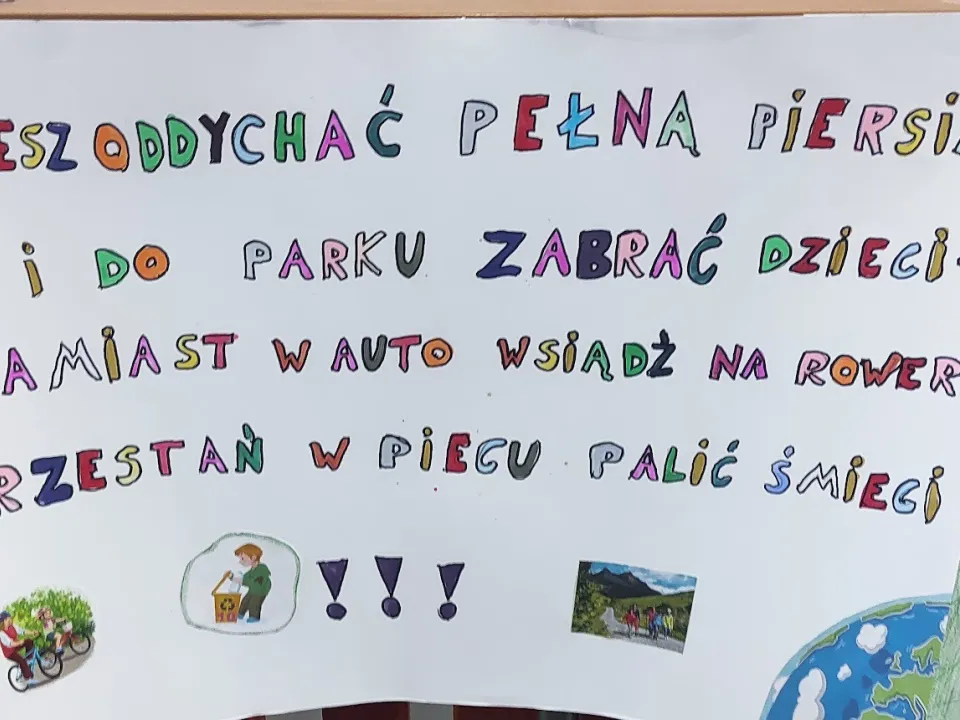 ESZ ODDYCHAĆ PEŁNĄ PIERSIĄ
I DO PARKU ZABRAĆ DZIECI
AMIAST W AUTO WSIĄDŹ NA ROWER
RZESTAŃ W PIECU PALIĆ ŚMIECI
!!!